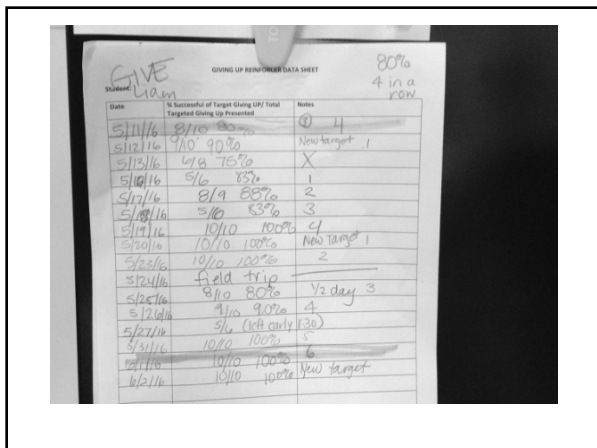 TO
GIVE
GIVING UP REINFORCER DATA SHEET
80%
4 in a
row
Student: Liam
Date % Successful of Target Giving UP/ Total Targeted Giving Up Presented Notes
5/11/16 8/10 80% 4
5/12/16 9/10 90% New target 1
5/13/16 6/8 75% X
5/16/16 5/6 83% 1
5/17/16 8/9 88% 2
5/18/16 5/6 83% 3
5/19/16 10/10 100% 4
5/20/16 10/10 100% New Target 1
5/23/16 10/10 100% 2
5/24/16 field trip
5/25/16 8/10 80% 1/2 day 3
5/26/16 9/10 90% 4
5/27/16 5/6 (left early 1:30)
5/31/16 10/10 100% 5
6/1/16 10/10 100% 6
6/2/16 10/10 100% New target